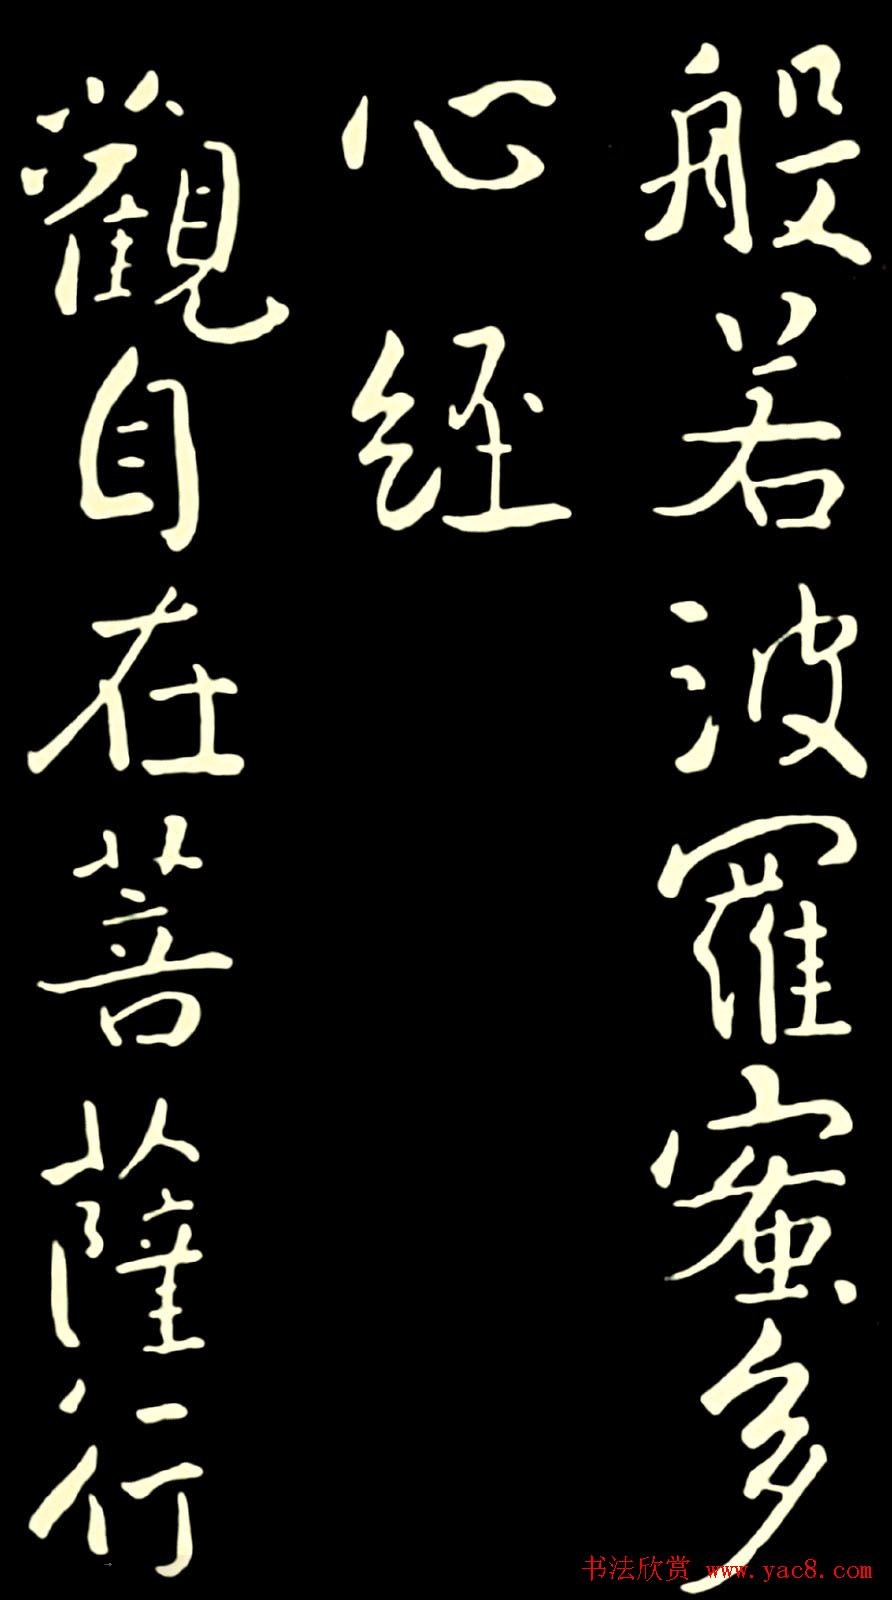 般若波羅蜜多
心経
觀自在菩薩行
书法欣赏 www.yac8.com